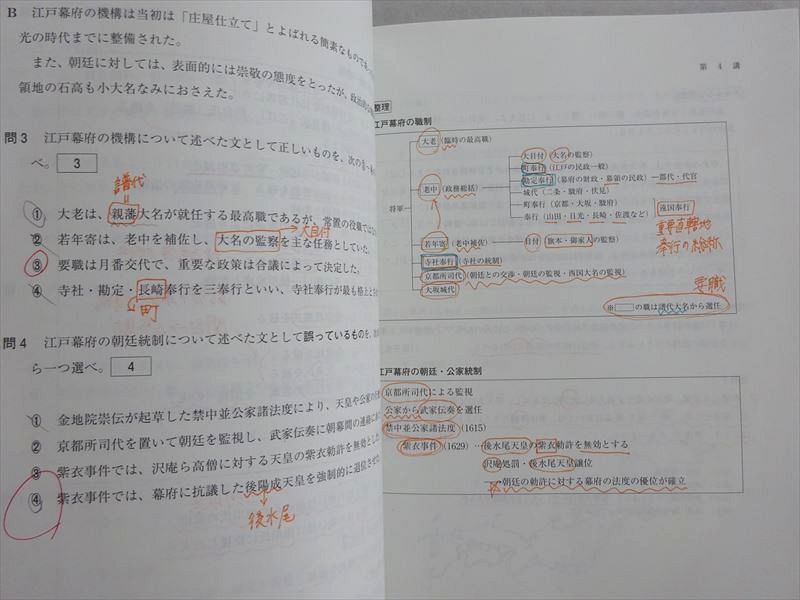 B 江戸幕府の機構は当初は「庄屋仕立て」とよばれる簡素なもので
光の時代までに整備された。
また、朝廷に対しては、表面的には崇敬の態度をとったが、政治
領地の石高も小大名なみにおさえた。
問3 江戸幕府の機構について述べた文として正しいものを、次の①〜
べ。 3
譜代
① 大老は、親藩大名が就任する最高職であるが、常置の役職では
大目付
② 若年寄は、老中を補佐し、大名の監察を主な任務としていた。
③ 要職は月番交代で、重要な政策は合議によって決定した。
④ 寺社・勘定・長崎奉行を三奉行といい、寺社奉行が最も格上と
町
問4 江戸幕府の朝廷統制について述べた文として誤っているものを、
ら一つ選べ。 4
① 金地院崇伝が起草した禁中並公家諸法度により、天皇や公家の
② 京都所司代を置いて朝廷を監視し、武家伝奏に朝幕間の連絡に
③ 紫衣事件では、沢庵ら高僧に対する天皇の紫衣勅許を無効とした
④ 紫衣事件では、幕府に抗議した後陽成天皇を強制的に退位させ
後水尾
第4講
整理
江戸幕府の職制
将軍
大老(臨時の最高職)
老中(政務総括)
大目付(大名の監察)
町奉行(江戸の民政一般)
勘定奉行(幕府の財政・幕領の民政)―郡代・代官
城代(二条・駿府・伏見)
町奉行(京都・大坂・駿府)
奉行(山田・日光・長崎・佐渡など)
遠国奉行
重要直轄地
奉行の総称
若年寄(老中補佐)
目付(旗本・御家人の監察)
寺社奉行(寺社の統制)
京都所司代(朝廷との交渉・朝廷の監視・西国大名の監視)
大坂城代
要職
※□の職は譜代大名から選任
江戸幕府の朝廷・公家統制
京都所司代による監視
公家から武家伝奏を選任
禁中並公家諸法度(1615)
紫衣事件(1629)…後水尾天皇の紫衣勅許を無効とする
沢庵処罰・後水尾天皇譲位
→朝廷の勅許に対する幕府の法度の優位が確立